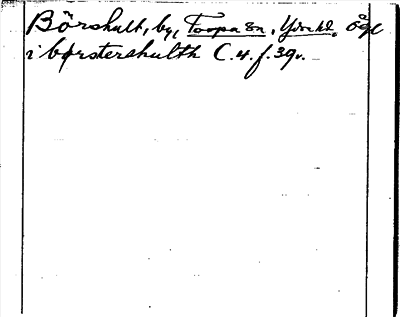 Börshult, by, Torpa sn, Ydre hd. Ögl
i børstershulth C.4.f.39v.